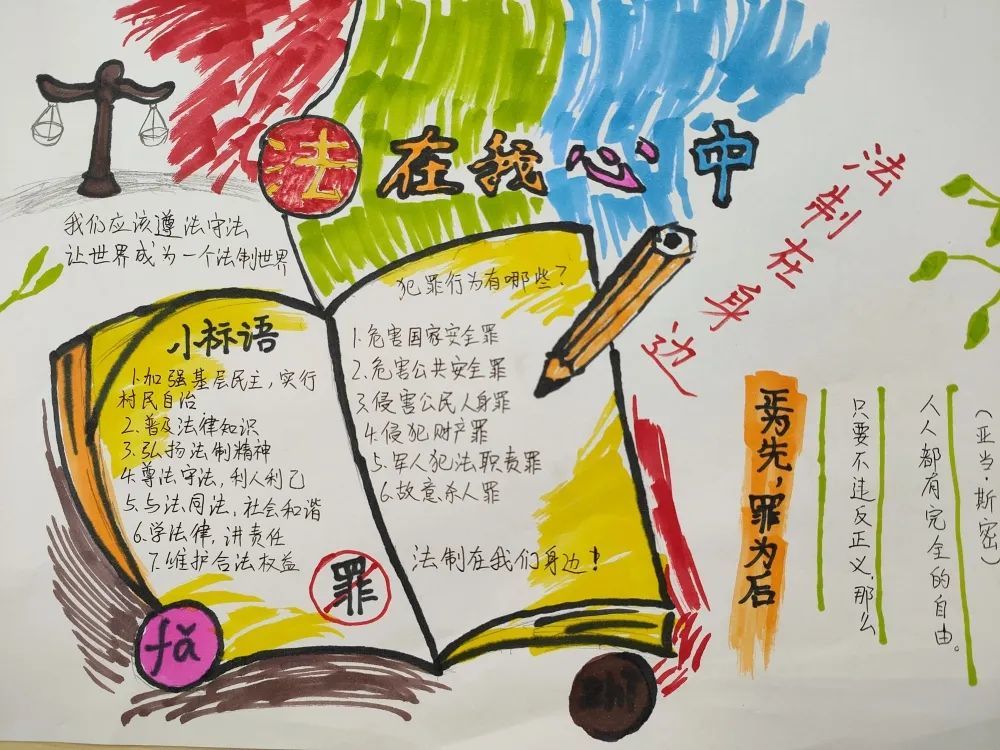 法在我心中
法制在身边
我们应该遵法守法
让世界成为一个法制世界
小标语
1.加强基层民主，实行
村民自治
2.普及法律知识
3.弘扬法制精神
4.尊法守法，利人利己
5.与法同法，社会和谐
6.学法律，讲责任
7.维护合法权益
罪
fǎ
犯罪行为有哪些？
1.危害国家安全罪
2.危害公共安全罪
3.侵害公民人身罪
4.侵犯财产罪
5.军人犯法职责罪
6.故意杀人罪
法制在我们身边！
正为先，罪为后
只要不违反正义，那么
人人都有完全的自由。
（亚当·斯密）